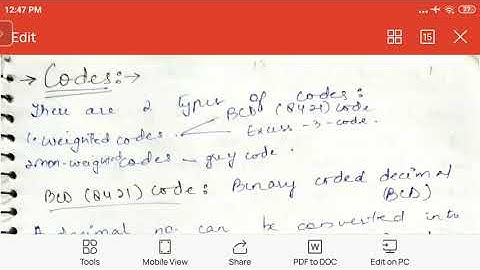 12:47 PM
77
Edit
15
→ Codes:→
1
There are 2 types of codes:
BCD (8421) code
1. weighted codes.
Excess-3-code.
2. non-weighted codes - grey code.
BCD (8421) code: Binary coded decimal
(BCD)
A decimal no. can be converted into
Tools
Mobile View
Share
W
PDF to DOC
Edit on PC